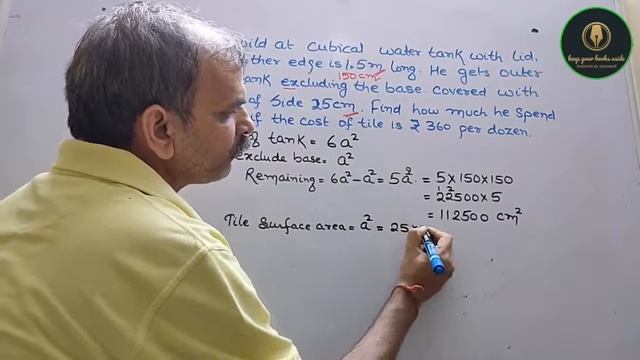 uild at cubical water tank with lid.
ther edge is 1.5m long. He gets outer
150cm
tank excluding the base covered with
of side 25cm. Find how much he spend
if the cost of tile is ₹ 360 per dozen.
tank = 6a²
exclude base = a²
Remaining = 6a² - a² = 5a². = 5×150×150
= 22500×5
12
= 112500 cm²
Tile Surface area = a² = 25×
keep your books aside